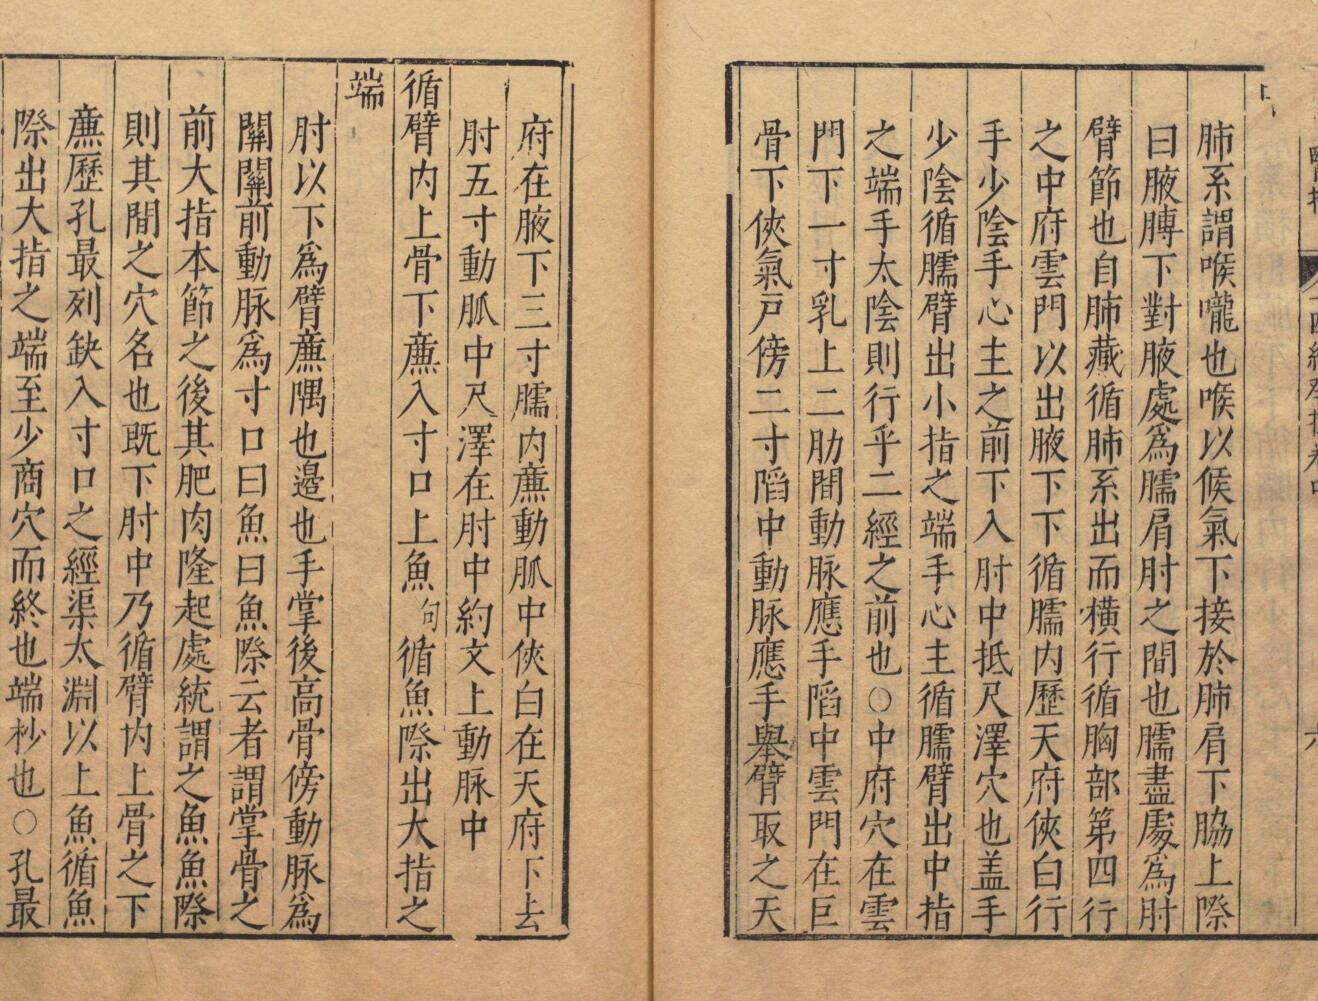 肺系謂喉嚨也喉以候氣下接於肺肩下脇上際
曰腋膊下對腋處為臑肩肘之間也臑盡處為肘
臂節也自肺藏循肺系出而橫行循胸部第四行
之中府雲門以出腋下下循臑內歷天府俠白行
手少陰手心主之前下入肘中抵尺澤穴也盖手
少陰循臑臂出小指之端手心主循臑臂出中指
之端手太陰則行乎二經之前也○中府穴在雲
門下一寸乳上二肋間動脉應手陷中雲門在巨
骨下俠氣戶傍二寸陷中動脉應手舉臂取之天
府在腋下三寸臑內廉動脈中俠白在天府下去
肘五寸動脈中尺澤在肘中約文上動脉中
循臂內上骨下廉入寸口上魚句循魚際出大指之
端
肘以下爲臂廉隅也邉也手掌後高骨傍動脉爲
關關前動脉爲寸口曰魚曰魚際云者謂掌骨之
前大指本節之後其肥肉隆起處統謂之魚魚際
則其間之穴名也既下肘中乃循臂內上骨之下
廉歷孔最列缺入寸口之經渠太淵以上魚循魚
際出大指之端至少商穴而終也端杪也○孔最